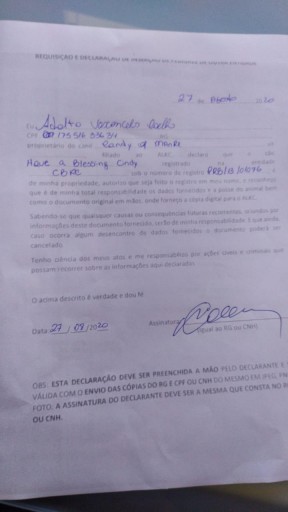 REQUISIÇÃO E DECLARAÇÃO DE
27 de Agosto 2020
Eu Adalto Vasconcelo Coelho
CPF
proprietário do cine Candy of
filiado ao declara que o cão
Have a Blessing Cindy registrado na entidade
CBKC sob o numero de registro
de minha propriedade, autorizo que seja feito o registro em meu nome, e reconheço
que é de minha total responsabilidade os dados fornecidos e a posse do animal bem
como o documento original em mãos, onde forneço a cópia digital para a
Sabendo ao que quaisquer causas ou consequências futuras recorrentes, oriundos por
informações deste documento fornecido, serão de minha responsabilidade. E que ainda,
caso ocorra algum desencontro de dados fornecidos o documento poderá ser
cancelado.
Tenho ciência dos meus atos e me responsabilizo por ações civeis e criminais que
possam recorrer sobre as informações aqui declaradas.
O acima descrito é verdade e dou fé
Data 27 / 08 / 2020
Assinatura
Igual ao RG ou CNH
OBS: ESTA DECLARAÇÃO DEVE SER PREENCHIDA A MÃO PELO DECLARANTE E
VÁLIDA COM O ENVIO DAS CÓPIAS DO RG E CPF OU CNH DO MESMO EM
FOTO. A ASSINATURA DO DECLARANTE DEVE SER A MESMA QUE CONSTA NO
OU CNH.